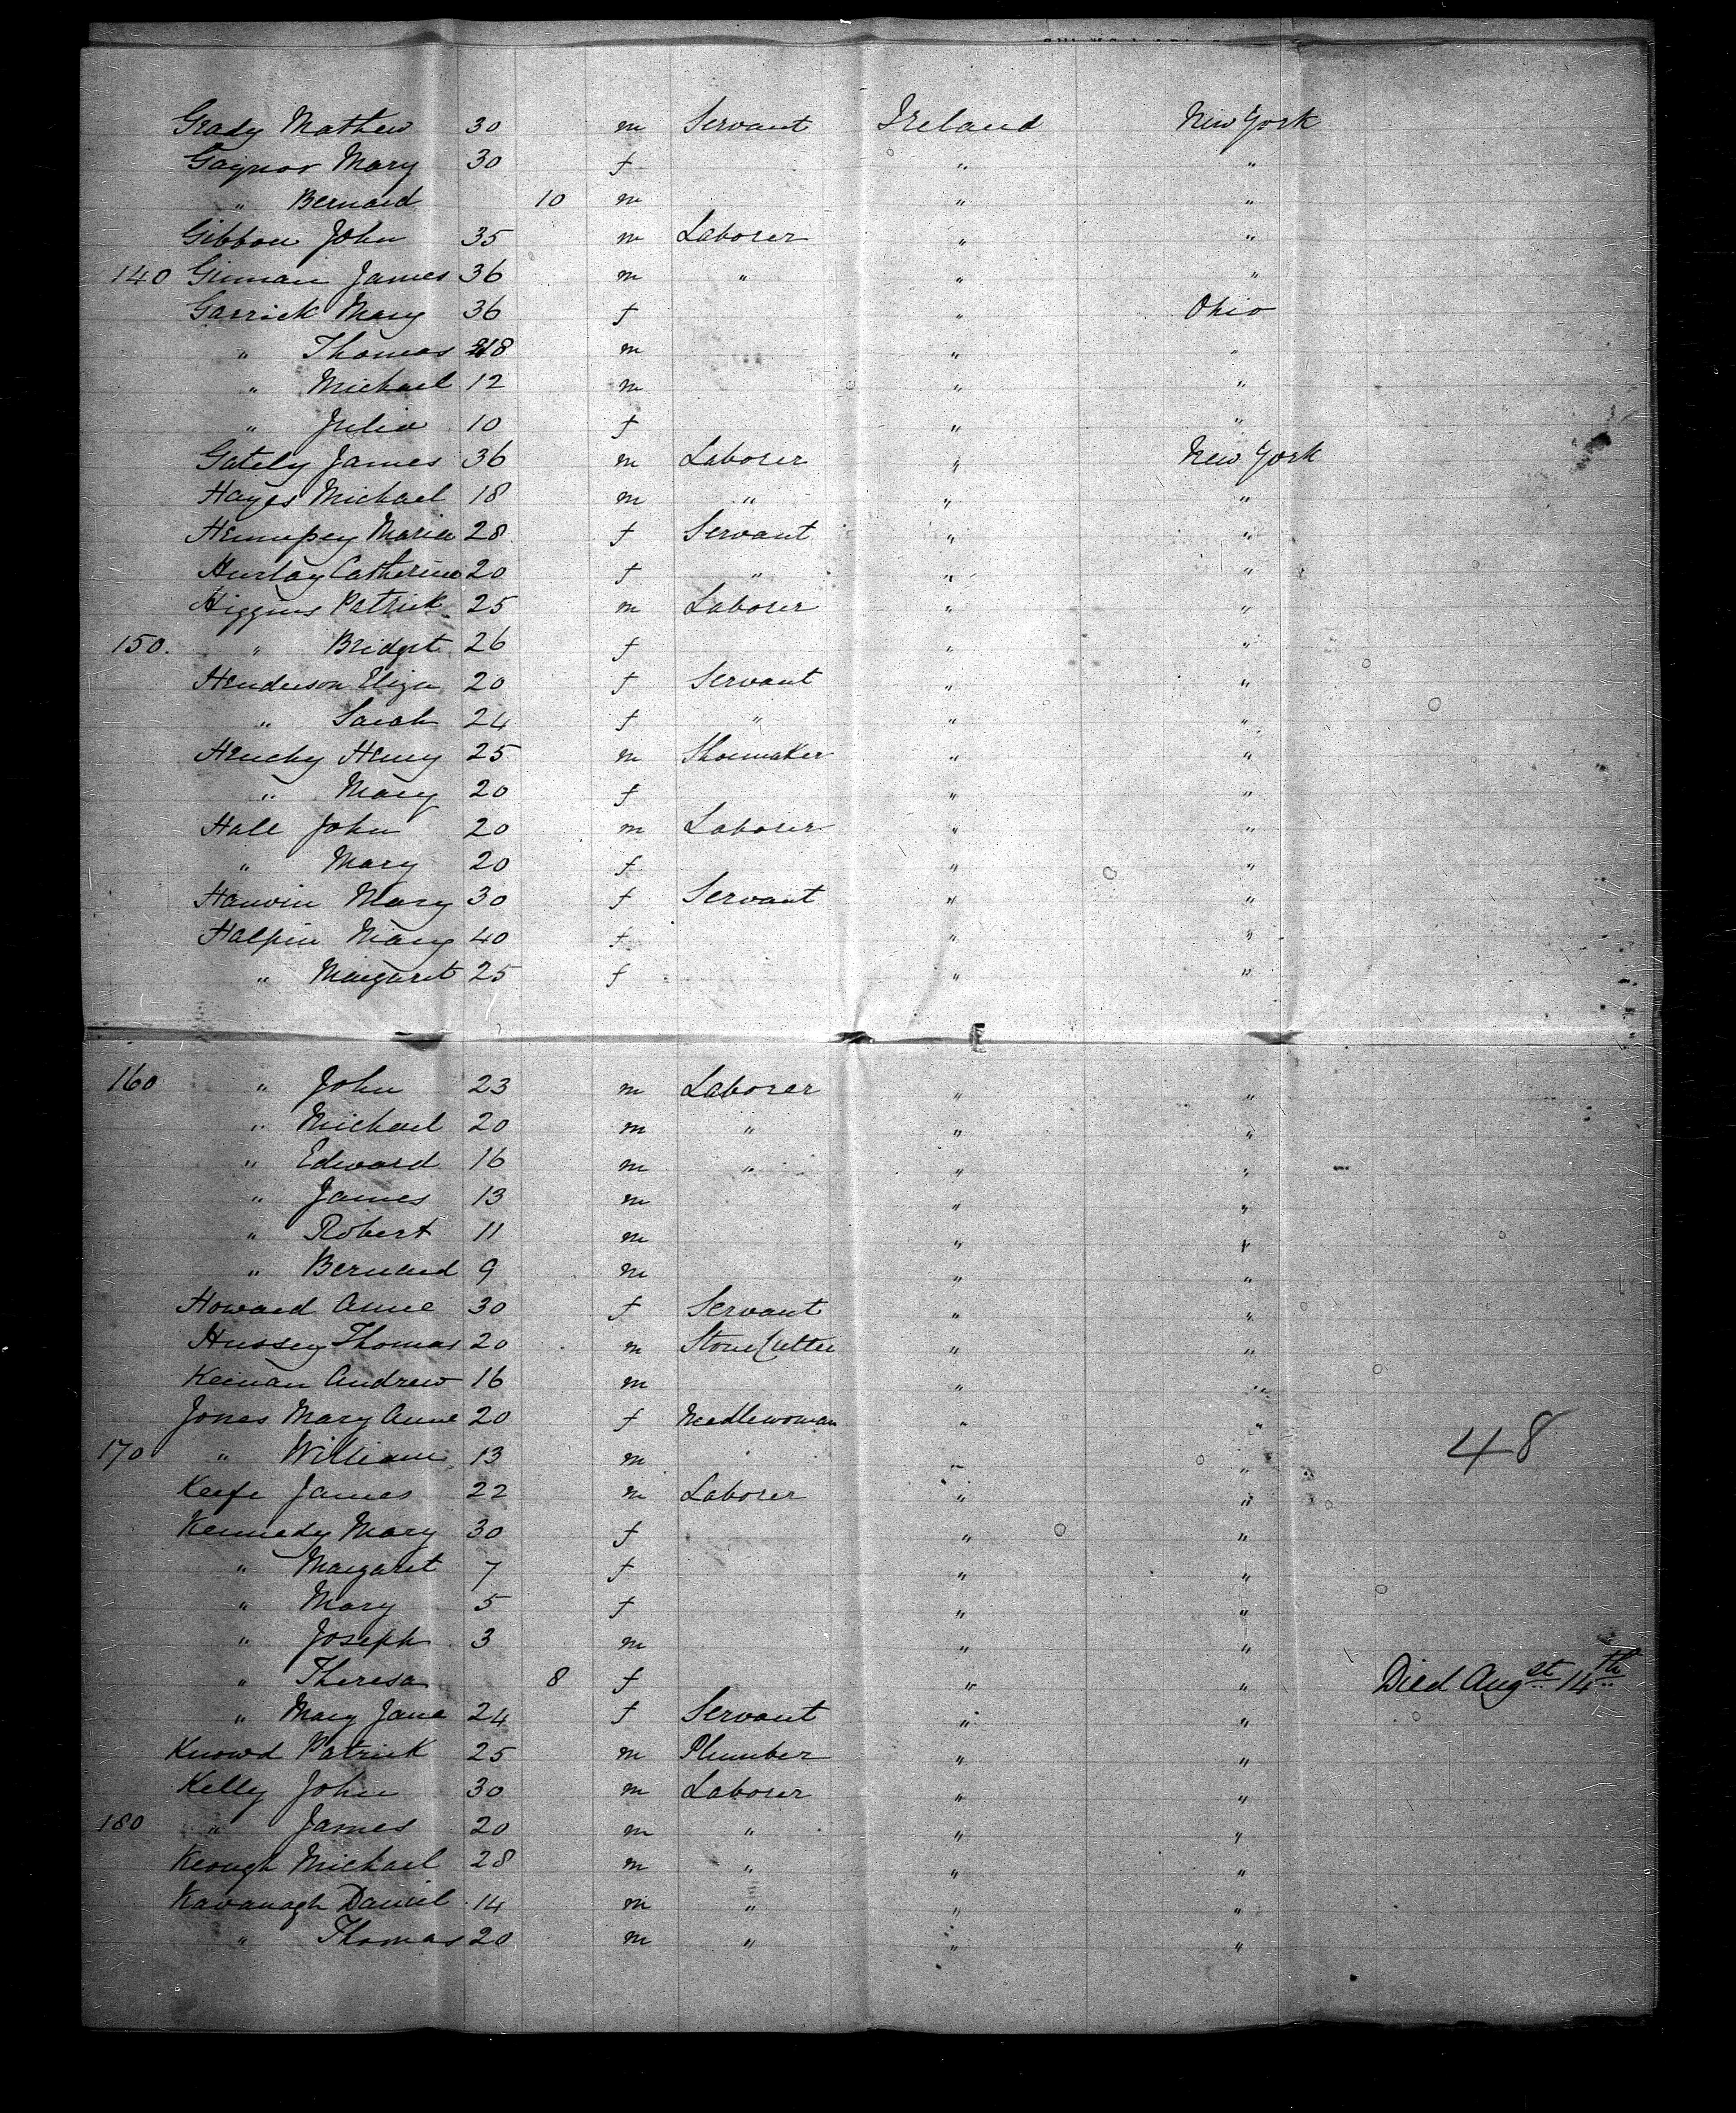 Grady Mathew 30 m Servant Ireland New York
Gaynor Mary 30 f " "
" Bernard 10 m " "
Gibbon John 35 m Laborer " "
140 Ginnan James 36 m " " "
Garrick Mary 36 f " Ohio
" Thomas 18 m " "
" Michael 12 m " "
" Julia 10 f " "
Gately James 36 m Laborer " New York
Hayes Michael 18 m " " "
Hempsey Maria 28 f Servant " "
Hurlay Catherine 20 f " " "
Higgins Patrick 25 m Laborer " "
150. " Bridget 26 f " "
Henderson Eliza 20 f Servant " "
" Sarah 24 f " " "
Henchy Henry 25 m Shoemaker " "
" Mary 20 f " "
Hall John 20 m Laborer " "
" Mary 20 f " "
Hanvin Mary 30 f Servant " "
Halpin Mary 40 f " "
" Margaret 25 f " "
160 " John 23 m Laborer " "
" Michael 20 m " " "
" Edward 16 m " " "
" James 13 m " "
" Robert 11 m " "
" Bernard 9 m " "
Howard Anne 30 f Servant " "
Hussey Thomas 20 m Stone Cutter " "
Keinan Andrew 16 m " "
Jones Mary Anne 20 f Needlewoman " "
170 " William 13 m " " 48
Keefe James 22 m Laborer " "
Kennedy Mary 30 f " "
" Margaret 7 f " "
" Mary 5 f " "
" Joseph 3 m " "
" Theresa 8 f " " Died Augst 14th
" Mary Jane 24 f Servant " "
Knowd Patrick 25 m Plumber " "
Kelly John 30 m Laborer " "
180 " James 20 m " " "
Keough Michael 28 m " " "
Kavanagh Daniel 14 m " " "
" Thomas 20 m " " "